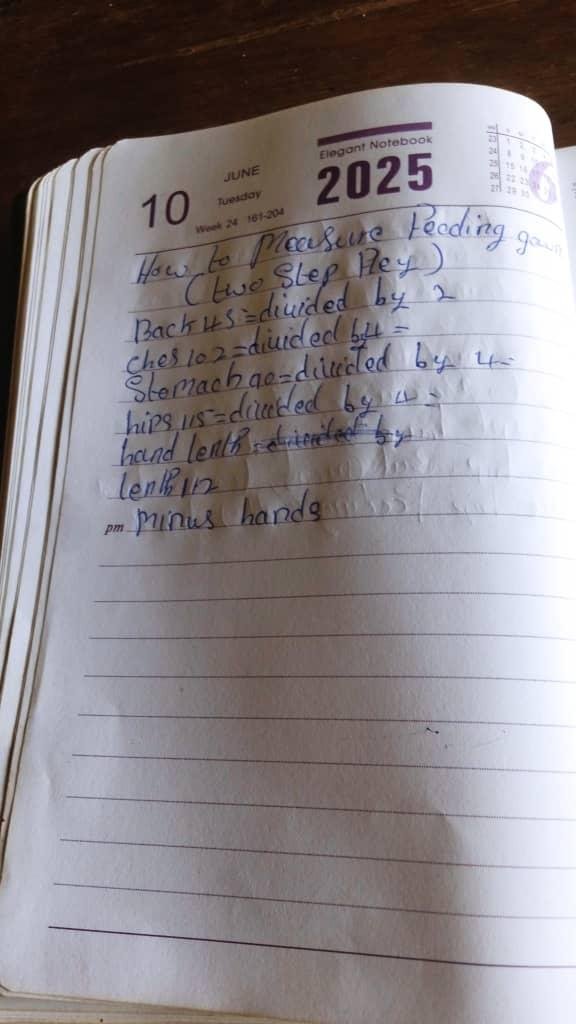 10
JUNE
Tuesday
Week 24 161-204
Elegant Notebook
2025
How to Measure Feeding gown
(two Step Pley)
Back 45=divided by 2
Ches 102=divided by 4=
Stomach 90=divided by 4=
hips 115=divided by 4=
hand lenth
lenth 112
pm Minus hands